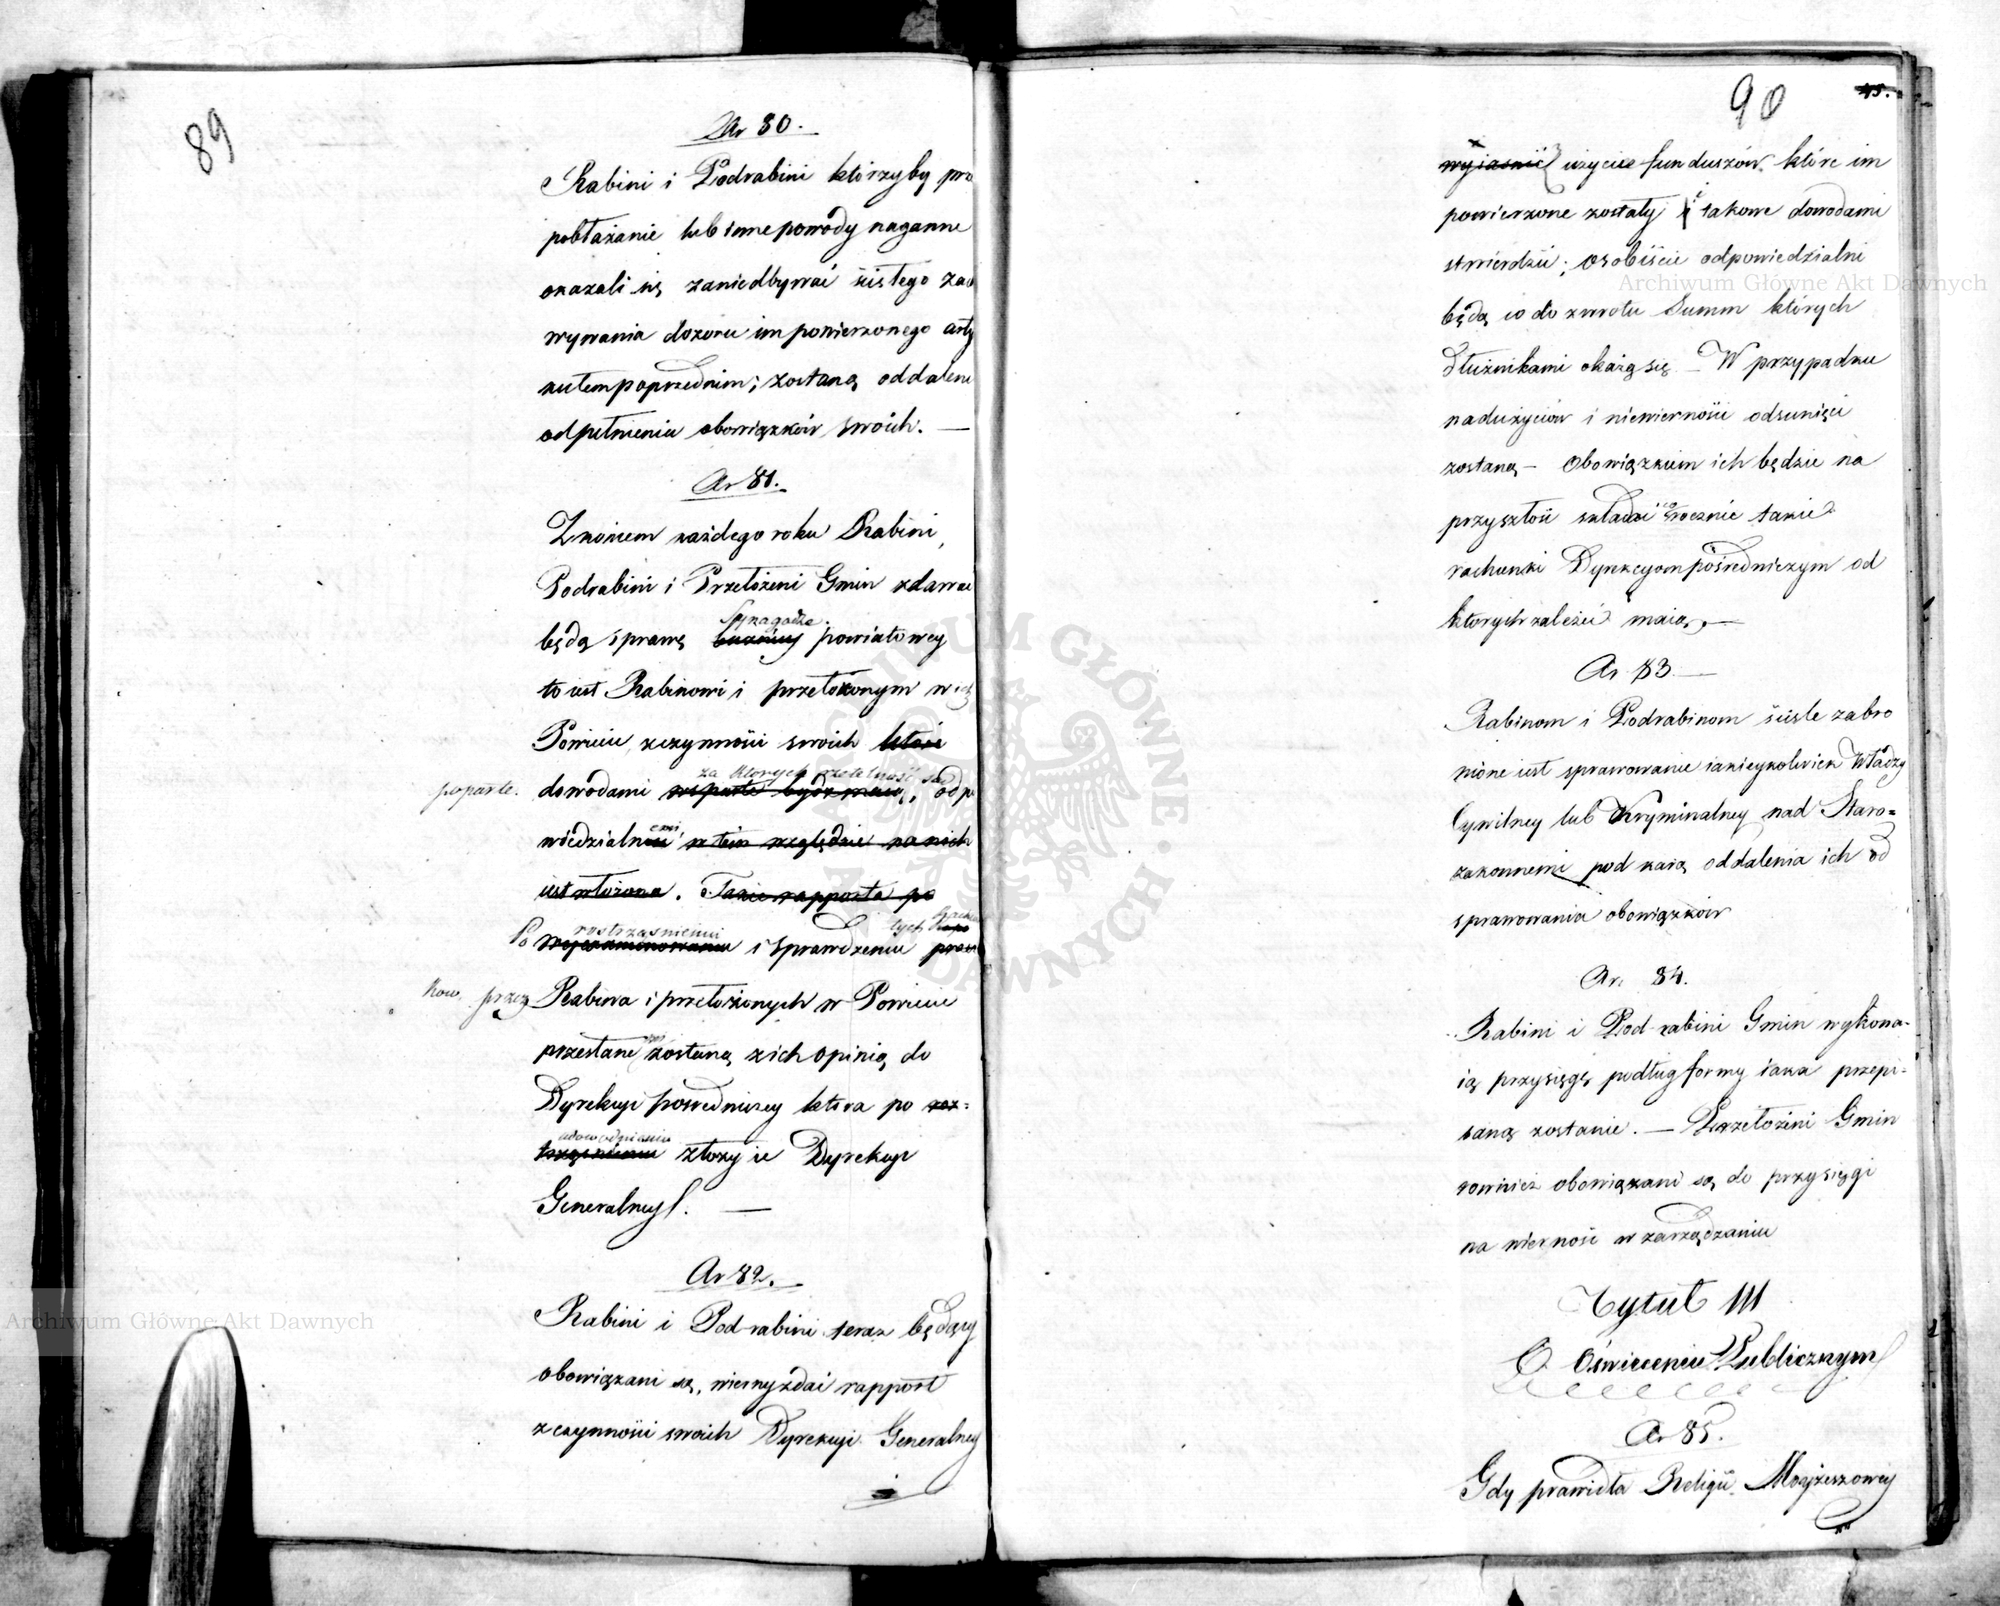 89
Ar 80.
Rabini i Podrabini którzyby prz
pobłażanie lub inne powody naganne
okazali się zaniedbywać ścisłego za
wywania dozoru im powierzonego arty
kułem poprzednim; zostaną oddaleni
od pełnienia obowiązków swoich. —
Ar 81.
Z końcem każdego roku Rabini,
Podrabini i Przełożeni Gmin zdawać
Synagodze.
będą sprawę powiatowey
to iest Rabinowi i przełożonym w ich
Powiecie z czynności swoich które
za których rzetelność są
poparte. dowodami wsparte bydź maią, odpo
wiedzialności w tém względzie na nich
iest włożona. Takie rapporta po
roztrząśnieniu tych
Po wyexaminowaniu i sprawdzeniu przez
ków przez Rabina i przełożonych w Powiecie
przesłane zostaną z ich opinią do
Dyrekcyi pośredniczey która po roz-
udowodnieniu
trząśnieniu złoży ie Dyrekcyi
Generalney. —
Ar 82.
Rabini i Podrabini teraz będący
obowiązani są, wierny zdać rapport
z czynności swoich Dyrekcyi Generalney
i
90
45.
wyiaśnić użycie funduszów które im
powierzone zostały i takowe dowodami
stwierdzić; osobiście odpowiedzialni
będą co do zwrotu Summ których
dłużnikami okażą się — W przypadku
nadużyciów i niewierności odsunięci
zostaną — Obowiązkiem ich będzie na
przyszłość składać corocznie takie
rachunki Dyrekcyom pośredniczym od
których zależeć maią. —
Ar. 83. —
Rabinom i Podrabinom ściśle zabro
nione iest sprawowanie iakieykolwiek Władzy
Cywilney lub Kryminalney nad Staro-
zakonnemi pod karą oddalenia ich od
sprawowania obowiązków
Ar. 84.
Rabini i Pod-rabini Gmin wykona-
ią przysięgę podług formy iaka przepi-
saną zostanie. — Przełożeni Gmin
rownież obowiązani są do przysięgi
na wierność w zarządzaniu
Tytuł III
O Oświeceniu Publicznym
Ar 85.
Gdy prawidła Religii Moyżeszowey
Archiwum Główne Akt Dawnych
Archiwum Główne Akt Dawnych
ARCHIWUM GŁÓWNE AKT DAWNYCH